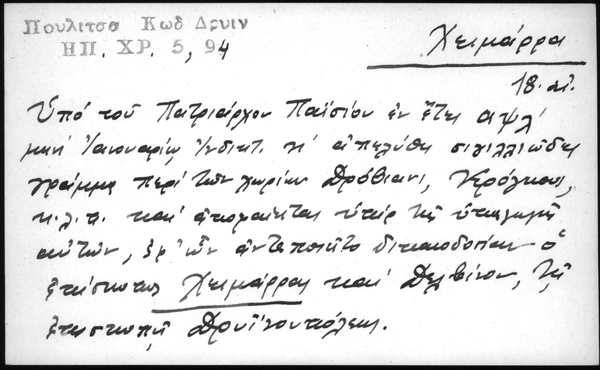 Πουλιτσα Κωδ Δρυιν
ΗΠ. ΧΡ. 5, 94
Χειμάρρα
18. αἰ.
Ὑπό τοῦ Πατριάρχου Παϊσίου ἐν ἔτει αψλ
μηνί Ἰαννουαρίῳ Ἰνδικτ. ἀπελύθη σιγιλλιῶδες
γράμμα περί τῶν χωρίων Δρόβιανι,
κ.λ.π. καί ὑπέρ τῆς ὑπαγωγῆς
αὐτῶν, ἐφ' ὧν ἀντεποιεῖτο δικαιοδοσίαν ὁ
ἐπίσκοπος Χειμάρρας καί Δελβίνου, τῇ
ἐπισκοπῇ Δρυϊνουπόλεως.